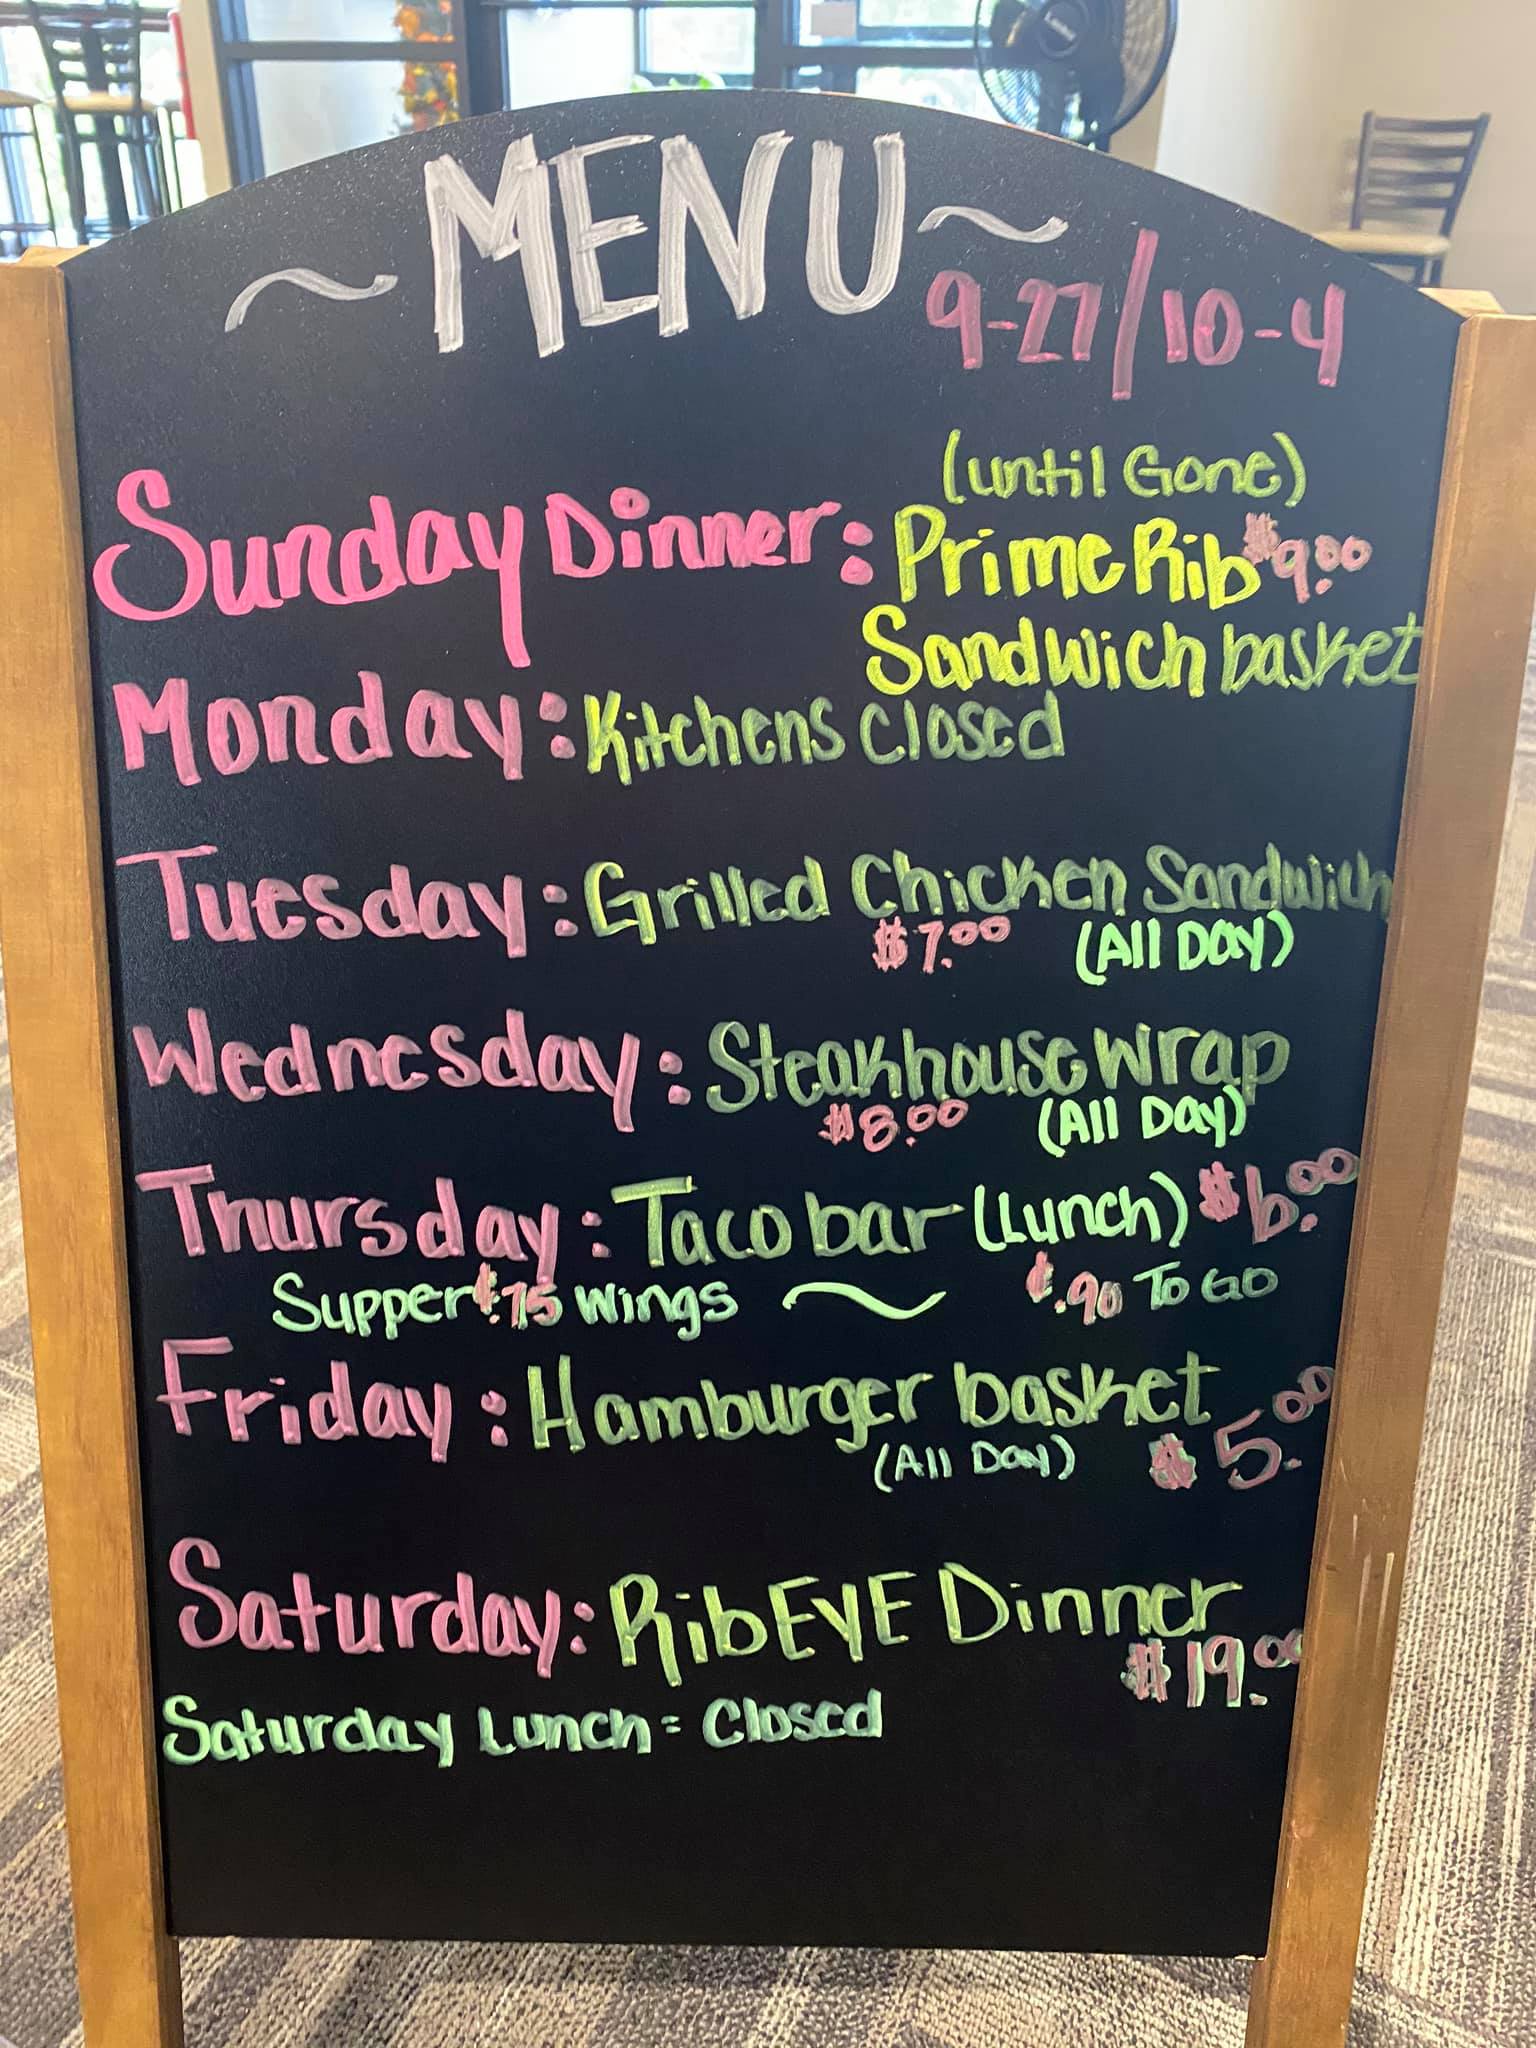 ~ MENU ~
9-27/10-4
(Until Gone)
Sunday Dinner: Prime Rib $9.00
Sandwich basket
Monday: Kitchens Closed
Tuesday: Grilled Chicken Sandwich
$7.00 (All Day)
Wednesday: Steakhouse Wrap
$8.00 (All Day)
Thursday: Taco bar (Lunch) $6.00
Supper ¢.75 Wings ~ ¢.90 To Go
Friday: Hamburger basket
(All Day) $5.00
Saturday: RibEYE Dinner
$19.00
Saturday Lunch = Closed